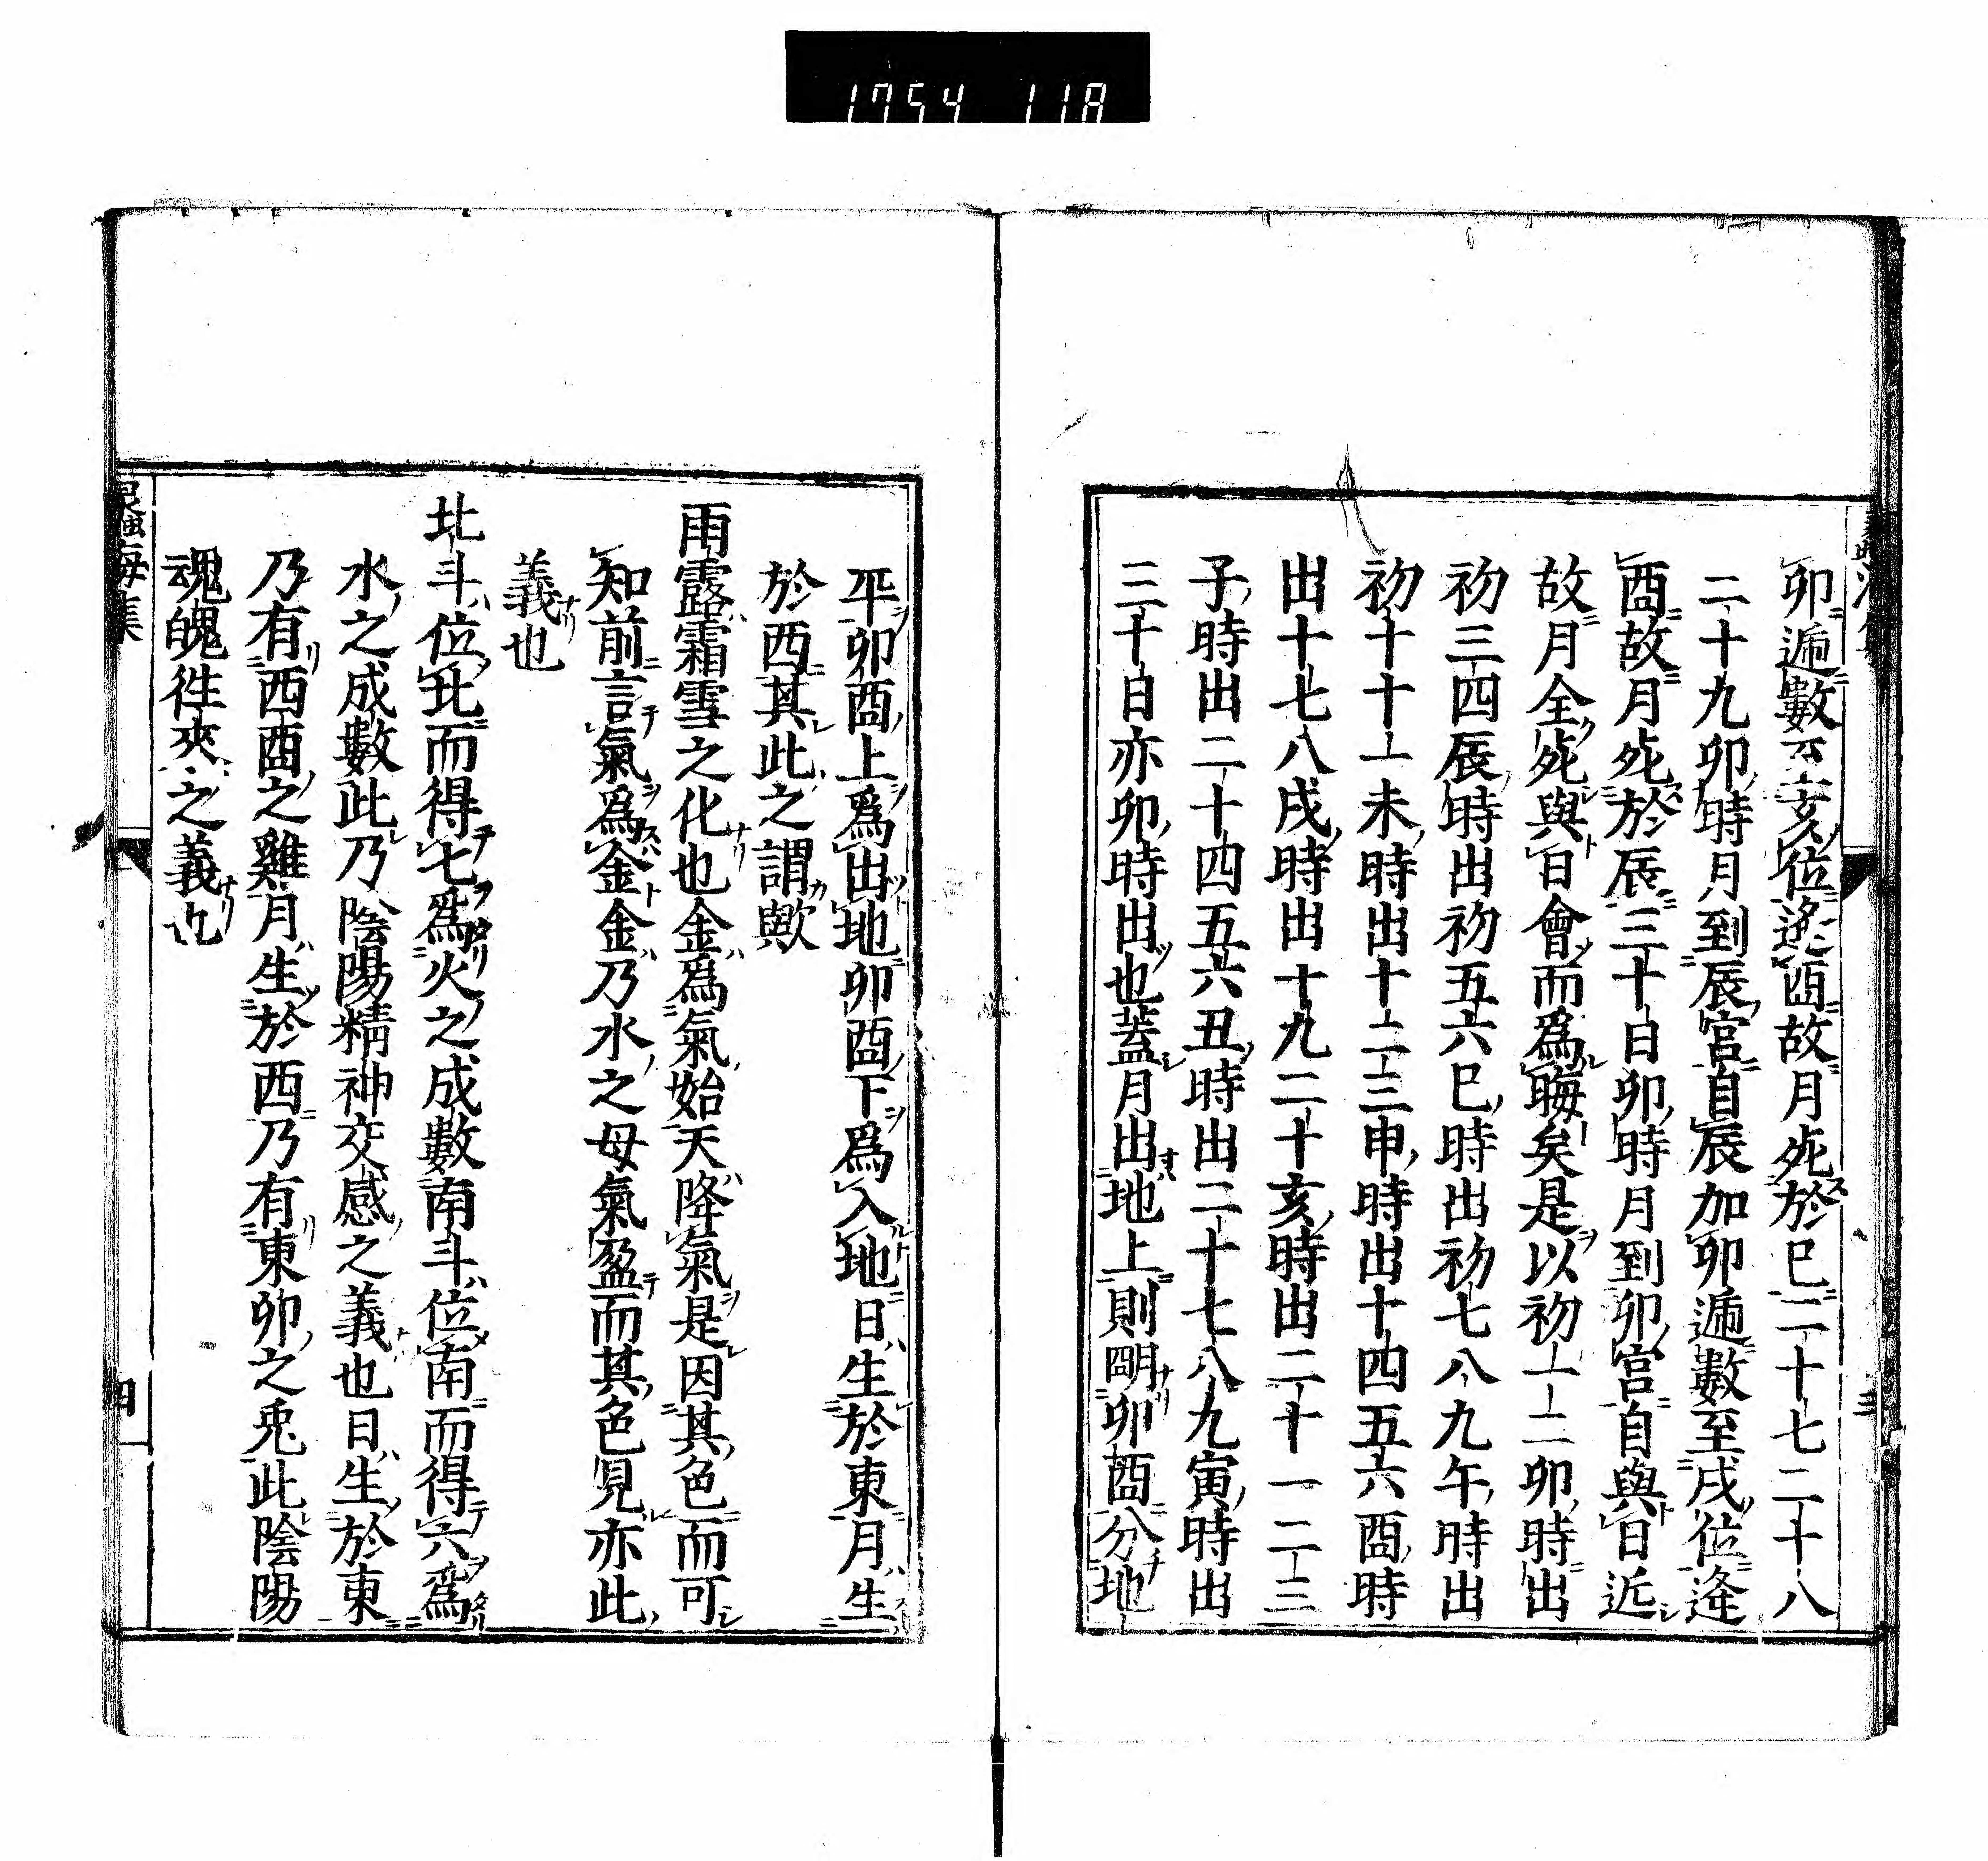 1754 118
卯遍數至亥位逢酉故月死於巳二十七二十八
二十九卯時月到辰宮自辰加卯遍數至戌位逢
酉故月死於辰三十日卯時月到卯宮自與日近
故月全死與日會而爲晦矣是以初一二卯時出
初三四辰時出初五六巳時出初七八九午時出
初十十一未時出十二三申時出十四五六酉時
出十七八戌時出十九二十亥時出二十一二三
子時出二十四五六丑時出二十七八九寅時出
三十日亦卯時出也蓋月出地上則明卯酉分地
三
平卯酉上爲出地卯酉下爲入地日生於東月生
於西其此之謂歟
雨露霜雪之化也金爲氣始天降氣是因其色而可
知前言氣爲金金乃水之母氣盈而其色見亦此
義也
北斗位北而得七爲火之成數南斗位南而得六爲
水之成數此乃陰陽精神交感之義也日生於東
乃有西酉之雞月生於西乃有東卯之兎此陰陽
魂魄徃來之義也
海集
四